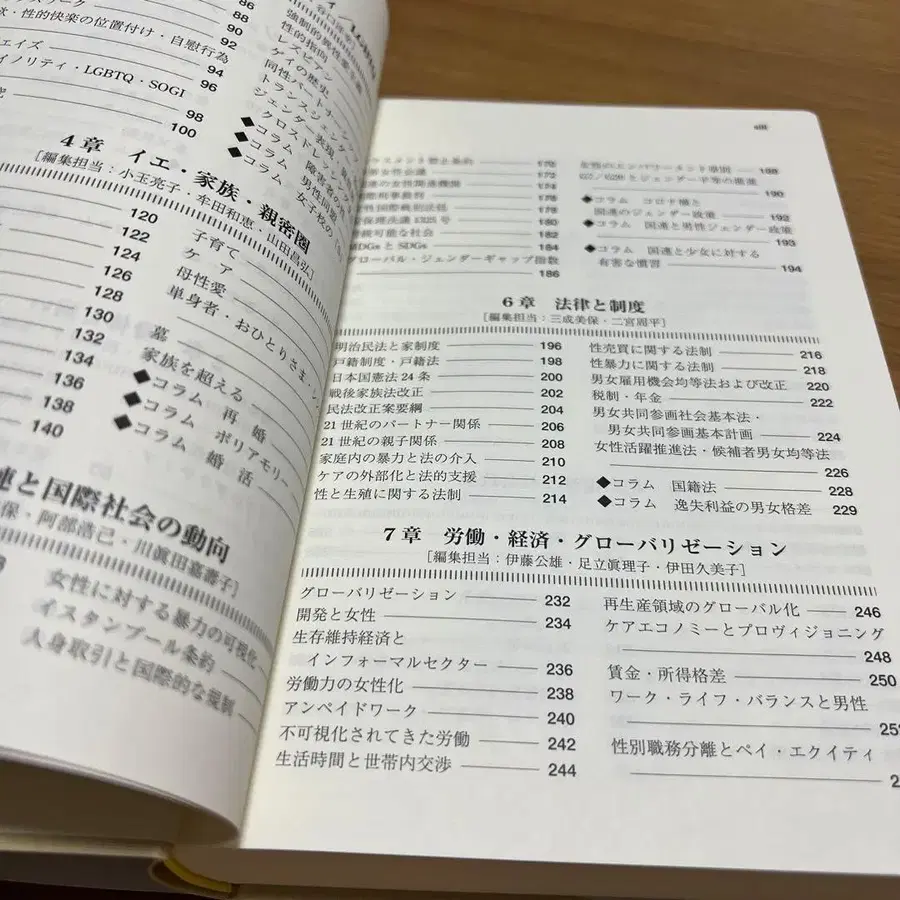 86
88
・性的快楽の位置付け・自慰行為
90
92
エイズ
94
イノリティ・LGBTQ・SOGI
96
98
100
性的指向
レズビアン
ゲイの歴史
同性パートナー
トランスジェンダー
ジェンダー表現・
クロスドレ
◆コラム 障害者の性
◆コラム 男性同
◆コラム 女子校の
4章 イエ・家族・親密圏
[編集担当:小玉亮子・牟田和恵・山田昌弘]
120
122
124
126
128
130
132
134
136
138
140
子育て
ケア
母性愛
単身者・おひとりさま
墓
家族を超える
◆コラム 再婚
◆コラム ポリアモリー
◆コラム 婚活
連と国際社会の動向
保・阿部浩己・川眞田嘉壽子]
女性に対する暴力の可視化
イスタンブール条約
人身取引と国際的な規制
170
172
174
176
178
180
能な社会 182
MDGsとSDGs 184
グローバル・ジェンダーギャップ指数
186
女性のエンパワーメント原則 188
G7/W20とジェンダー平等の推進
190
◆コラム コロナ禍と
国連のジェンダー政策 192
◆コラム 国連と男性ジェンダー政策
193
◆コラム 国連と少女に対する
有害な慣習 194
6章 法律と制度
[編集担当:三成美保・二宮周平]
明治民法と家制度 196
戸籍制度・戸籍法 198
日本国憲法24条 200
戦後家族法改正 202
民法改正案要綱 204
21世紀のパートナー関係 206
21世紀の親子関係 208
家庭内の暴力と法の介入 210
ケアの外部化と法的支援 212
性と生殖に関する法制 214
性売買に関する法制 216
性暴力に関する法制 218
男女雇用機会均等法および改正 220
税制・年金 222
男女共同参画社会基本法・
男女共同参画基本計画 224
女性活躍推進法・候補者男女均等法
226
◆コラム 国籍法 228
◆コラム 逸失利益の男女格差 229
7章 労働・経済・グローバリゼーション
[編集担当:伊藤公雄・足立眞理子・伊田久美子]
グローバリゼーション 232
開発と女性 234
生存維持経済と
インフォーマルセクター 236
労働力の女性化 238
アンペイドワーク 240
不可視化されてきた労働 242
生活時間と世帯内交渉 244
再生産領域のグローバル化 246
ケアエコノミーとプロヴィジョニング
248
賃金・所得格差 250
ワーク・ライフ・バランスと男性
252
性別職務分離とペイ・エクイティ